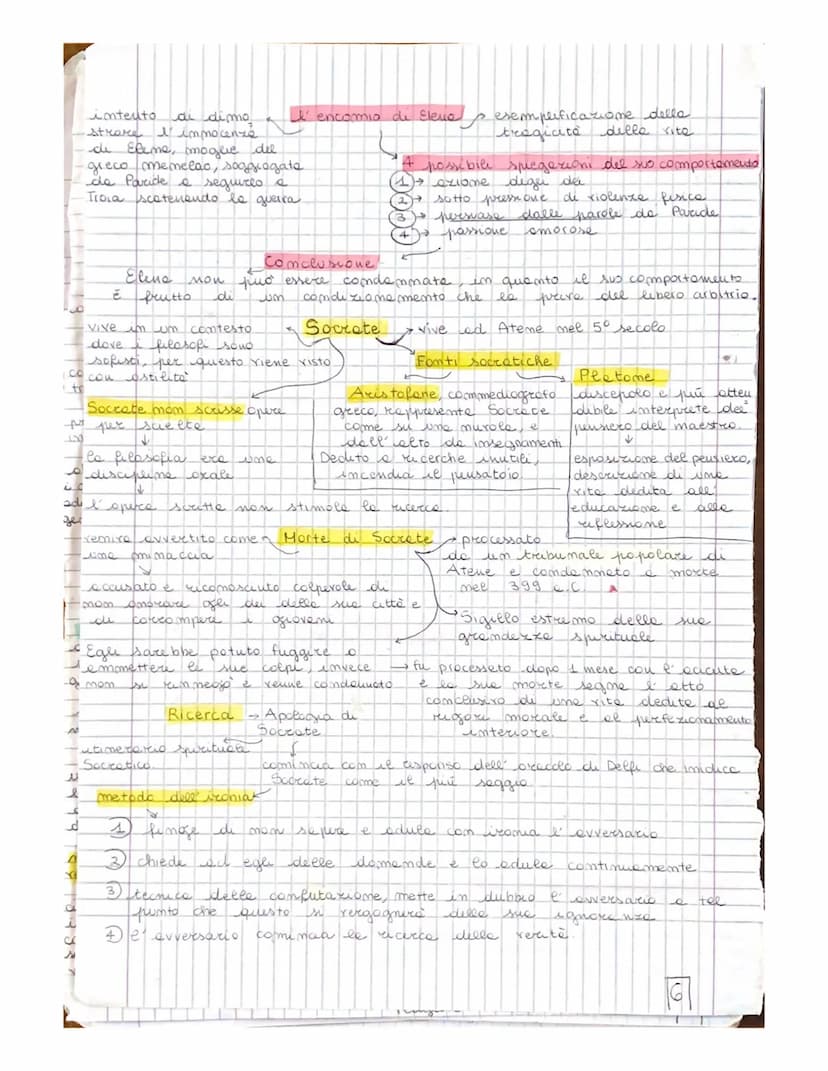 L'encomio di Elena
intento di dimo
strare l'innocenza
di Elena, moglie del
greco menelao, soggiogata
da Paride a seguirlo a
Troia scatenando la guerra
esemplificazione della
tragicità della vita
4 possibili spiegazioni del suo comportamento
1 → azione degli dei
2 → sotto pressione di violenza fisica
3 → persuasa dalle parole da Paride
4 → passione amorosa
Conclusione
Elena non può essere condannata, in quanto il suo comportamento
È frutto di un condizionamento che la priva del libero arbitrio.
Socrate
vive in un contesto
dove i filosofi sono
sofisti, per questo viene visto
con ostilità
→ vive ad Atene nel 5° secolo
Fonti socratiche
Aristofane, commediografo
greco, rappresenta Socrate
come su una nuvola, e
dall'alto da insegnamenti
Dedito a ricerche inutili,
incendia il pensatoio
Platone
discepolo e più atten
dibile interprete del
pensiero del maestro.
↓
esposizione del pensiero,
descrizione di una
vita dedita all'
educazione e alla
riflessione
Socrate non scrisse opere
per scelta
↓
la filosofia era una
disciplina orale
↓
l'opera scritta non stimola la ricerca.
Morte di Socrate
veniva avvertito come
una minaccia
accusato e riconosciuto colpevole di
non onorare gli dei della sua città e
di corrompere i giovani
→ processato
da un tribunale popolare di
Atene e condannato a morte
nel 399 a.C.
Sigillo estremo della sua
grandezza spirituale
Egli sarebbe potuto fuggire o
ammettere le sue colpe, invece
non si rinnegò e venne condannato
→ fu processato dopo 1 mese con l'cicuta
e la sua morte segna l'atto
conclusivo di una vita dedita al
rigore morale e al perfezionamento
interiore.
Ricerca → Apologia di
Socrate
itinerario spirituale
Socratico
comincia con il responso dell'oracolo di Delfi che indica
Socrate come il più saggio
metodo dell'ironia
1 finge di non sapere e adula con ironia l'avversario
2 chiede ad egli delle domande e lo adula continuamente
3 tecnica della confutazione, mette in dubbio l'avversario a tal
punto che questo si vergognerà della sua ignoranza
4 l'avversario comincia la ricerca della verità.
6